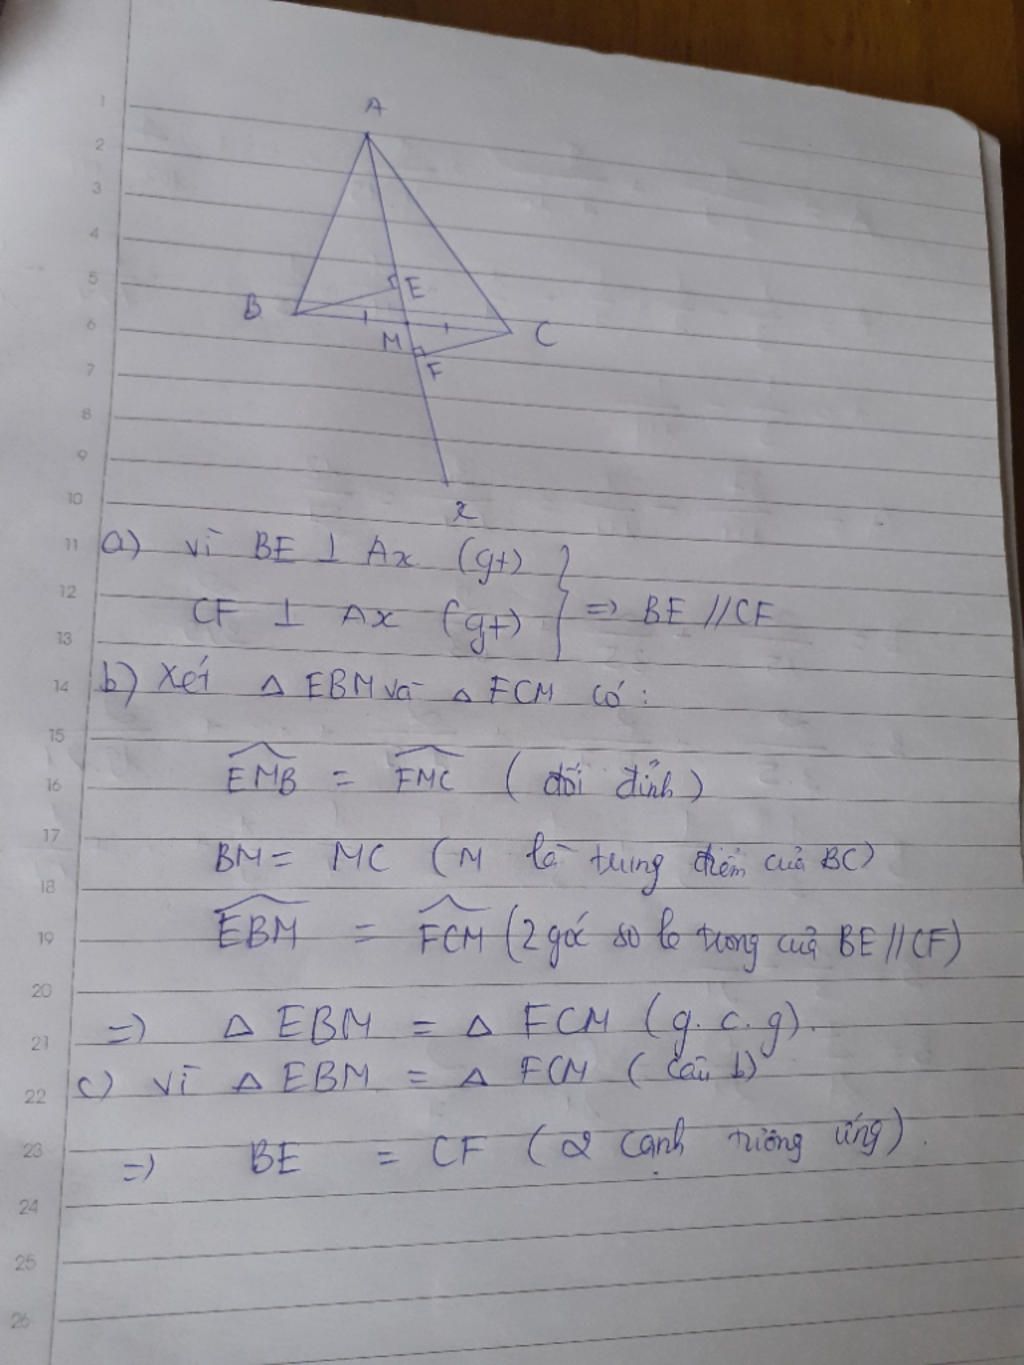 1
2
3
4
5
6
7
8
9
10
11
12
13
14
15
16
17
18
19
20
21
22
23
24
25
26
A
E
B
C
M
F
x
a) vì BE ⊥ Ax (gt)
CF ⊥ Ax (gt) } => BE // CF
b) Xét △ EBM và △ FCM có:
EMB = FMC (đối đỉnh)
BM = MC (M là trung điểm của BC)
EBM = FCM (2 góc so le trong của BE // CF)
=> △ EBM = △ FCM (g.c.g).
c) vì △ EBM = △ FCM (câu b)
=> BE = CF (2 cạnh tương ứng).